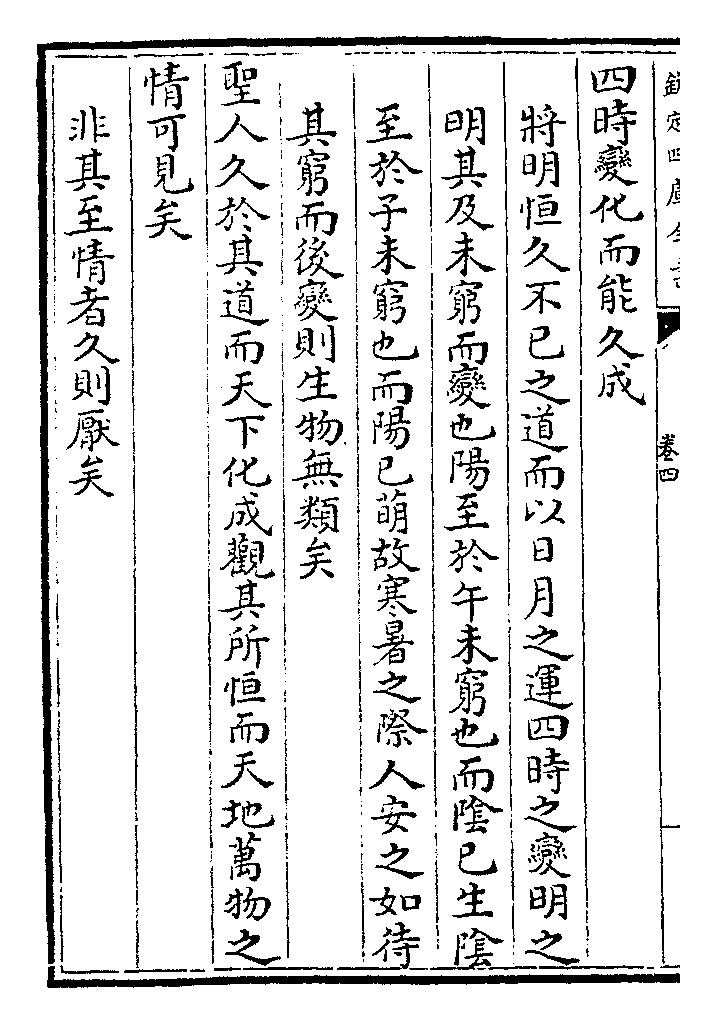 欽定四庫全書
卷四
四時變化而能久成
將明恒久不已之道而以日月之運四時之變明之
明其及未窮而變也陽至於午未窮也而陰已生陰
至於子未窮也而陽已萌故寒暑之際人安之如待
其窮而後變則生物無類矣
聖人久於其道而天下化成觀其所恒而天地萬物之
情可見矣
非其至情者久則厭矣